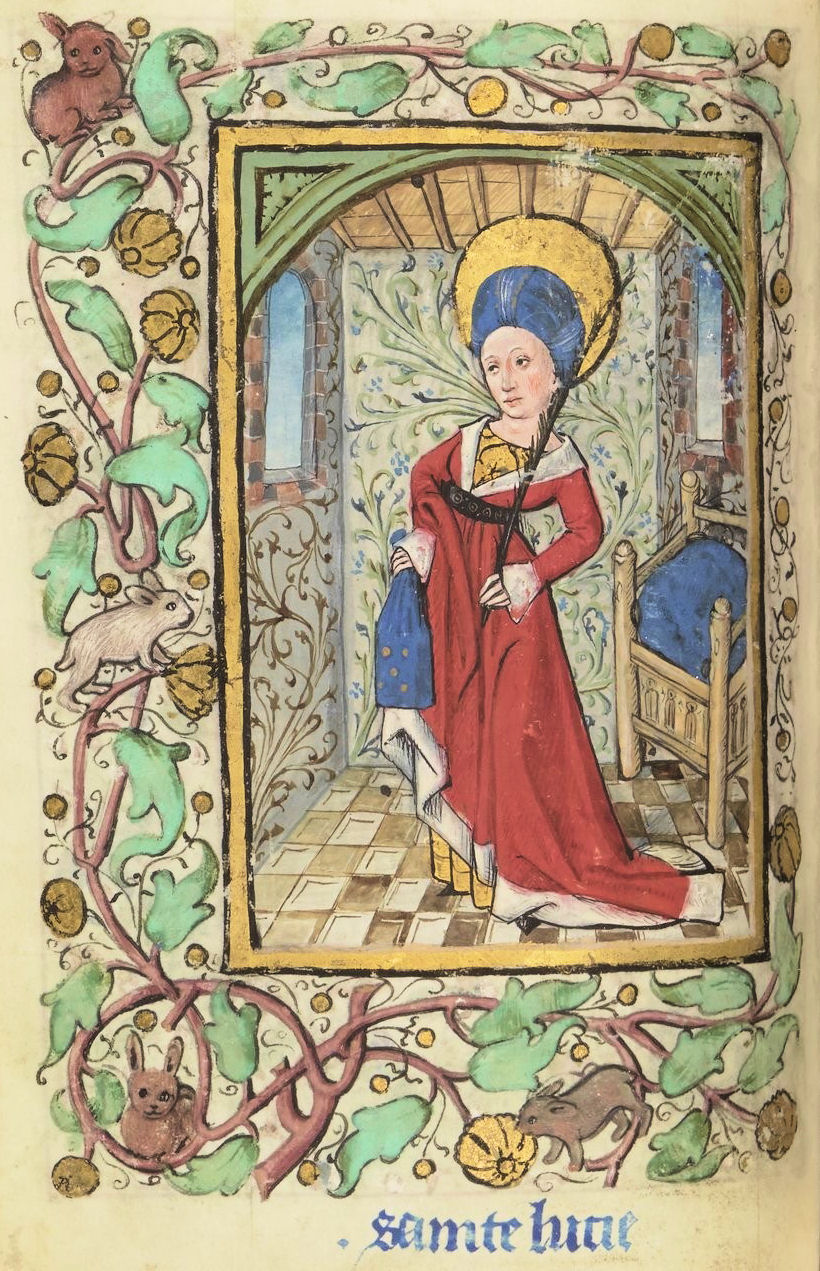 . sainte lucie